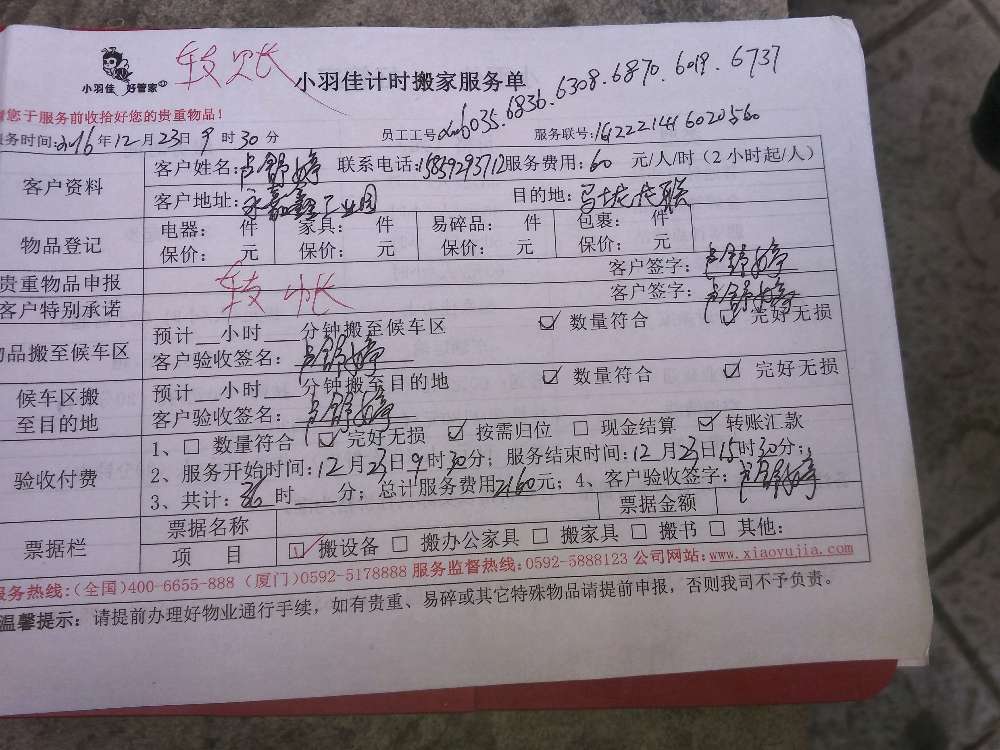 转账
小羽佳 好管家
小羽佳计时搬家服务单
请您于服务前收拾好您的贵重物品!
服务时间:2016年12月23日9时30分 员工工号:6035.6836.6308.6870.6019.6737 服务联号:
客户资料
客户姓名:卢舒婷 联系电话:15859293712 服务费用:60 元/人/时(2小时起/人)
客户地址:永嘉鑫工业园 目的地:马垅
物品登记
电器: 件 家具: 件 易碎品: 件 包裹: 件
保价: 元 保价: 元 保价: 元 保价: 元
贵重物品申报 客户签字:卢舒婷
客户特别承诺 转账 客户签字:卢舒婷
物品搬至候车区
预计__小时___分钟搬至候车区 ☑ 数量符合 ☑ 完好无损
客户验收签名:卢舒婷
候车区搬至目的地
预计__小时___分钟搬至目的地 ☑ 数量符合 ☑ 完好无损
客户验收签名:卢舒婷
验收付费
1、□ 数量符合 ☑ 完好无损 ☑ 按需归位 □ 现金结算 ☑ 转账汇款
2、服务开始时间:12月23日9时30分;服务结束时间:12月23日15时30分;
3、共计:36时___分;总计服务费用2160元;4、客户验收签字:卢舒婷
票据栏
票据名称 票据金额
项 目 ☑ 搬设备 □ 搬办公家具 □ 搬家具 □ 搬书 □ 其他:
服务热线:(全国)400-6655-888 (厦门)0592-5178888 服务监督热线:0592-5888123 公司网站:www.xiaoyujia.com
温馨提示:请提前办理好物业通行手续,如有贵重、易碎或其它特殊物品请提前申报,否则我司不予负责。